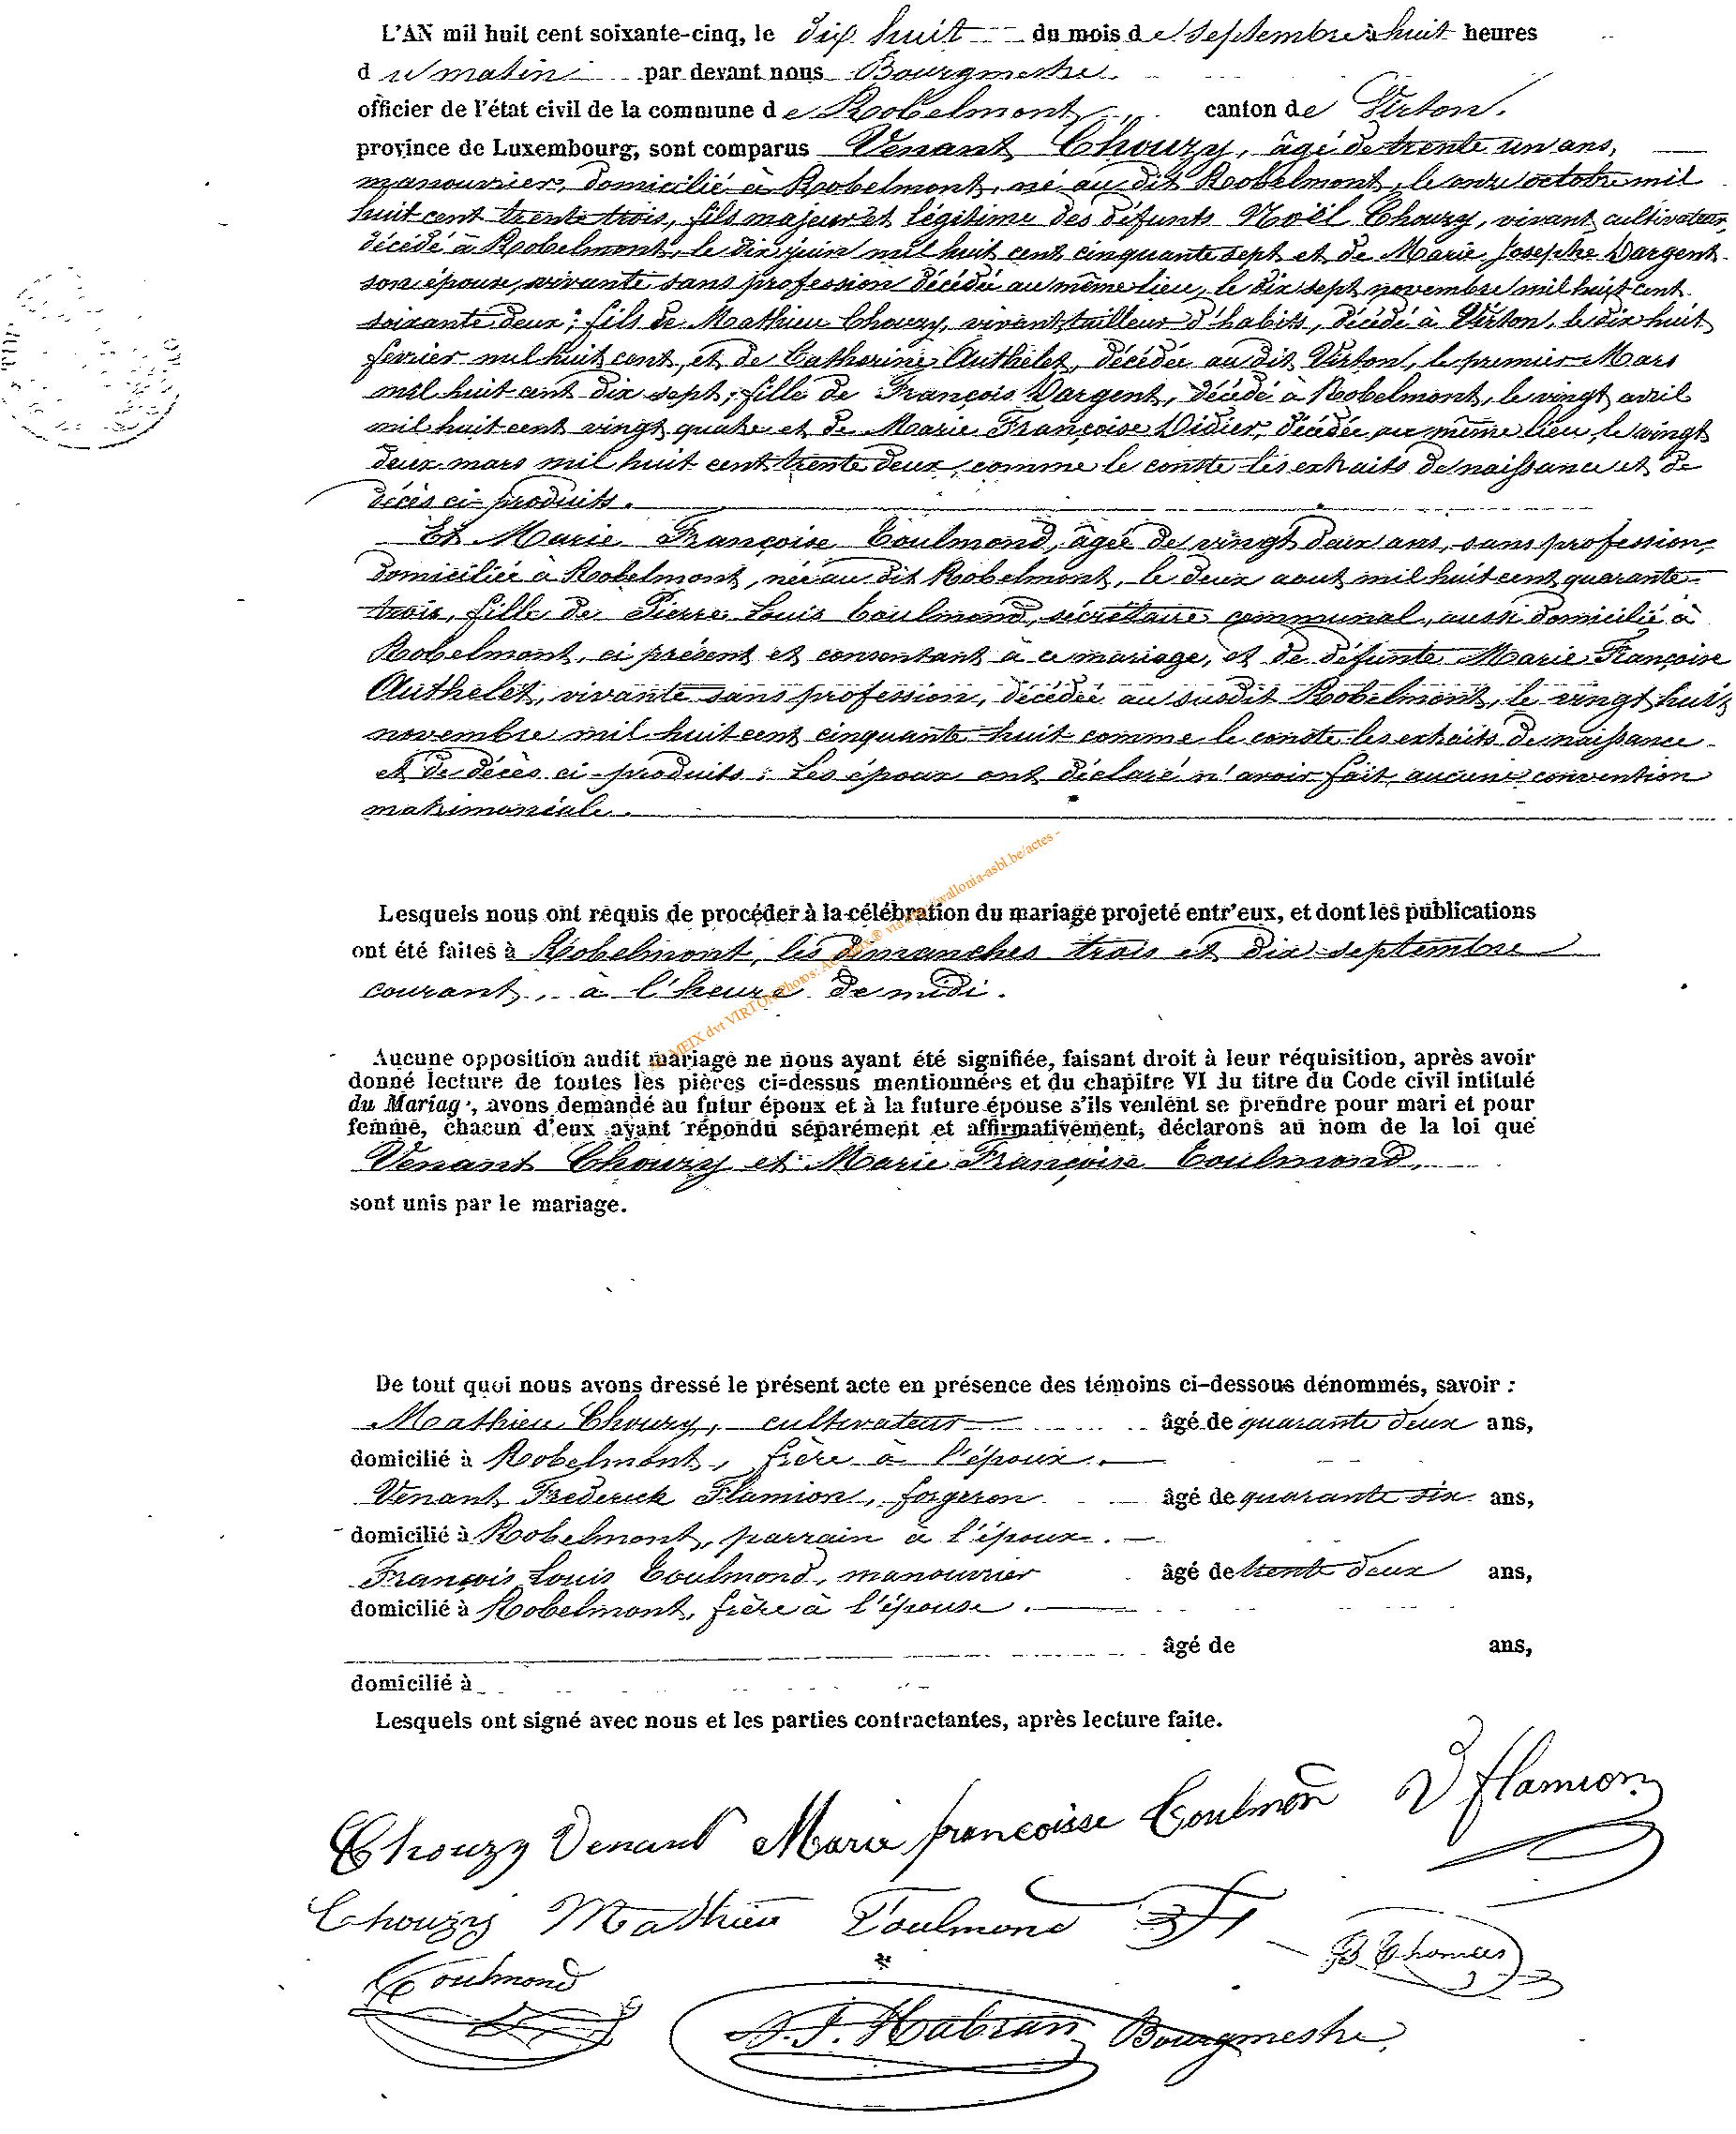 L'AN mil huit cent soixante-cinq, le dix huit du mois de septembre à huit heures
du matin par devant nous Bourgmestre
officier de l'état civil de la commune de Robelmont canton de Virton.
province de Luxembourg, sont comparus Venant Chouzy, âgé de trente un ans,
manouvrier, domicilié à Robelmont, né au dit Robelmont, le onze octobre mil
huit cent trente trois, fils majeur et légitime des défunts Noël Chouzy, vivant cultivateur,
décédé à Robelmont, le dix juin mil huit cent cinquante sept et de Marie Josephe Dargent
son épouse, vivante sans profession décédée au même lieu, le dix sept novembre mil huit cent
soixante deux; fils de Mathieu Chouzy, vivant tailleur d'habits, décédé à Virton, le dix huit
fevrier mil huit cent, et de Catherine Authelet, décédée au dit Virton, le premier Mars
mil huit cent dix sept; fille de François Dargent, décédé à Robelmont, le vingt avril
mil huit cent vingt quatre et de Marie Françoise Didier, décédée au même lieu, le vingt
deux mars mil huit cent trente deux, comme le conste les extraits de naissance et de
décès ci-produits.
Et Marie Françoise Toulmond, âgée de vingt deux ans, sans profession,
domiciliée à Robelmont, née au dit Robelmont, le deux aout mil huit cent quarante
trois, fille de Pierre Louis Toulmond, sécrétaire communal, aussi domicilié à
Robelmont, ci présent et consentant à ce mariage, et de défunte Marie Françoise
Authelet, vivante sans profession, décédée au susdit Robelmont, le vingt huit
novembre mil huit cent cinquante huit comme le conste les extraits de naissance
et de décès ci-produits. Les époux ont déclaré n'avoir fait aucune convention
matrimoniale.
MEIX dvt VIRTON Photos: via wallonia-asbl.be/actes -
Lesquels nous ont requis de procéder à la célébration du mariage projeté entr'eux, et dont les publications
ont été faites à Robelmont, les dimanches trois et dix septembre
courant, à l'heure de midi.
Aucune opposition audit mariage ne nous ayant été signifiée, faisant droit à leur réquisition, après avoir
donné lecture de toutes les pièces ci-dessus mentionnées et du chapitre VI du titre du Code civil intitulé
du Mariage, avons demandé au futur époux et à la future épouse s'ils veulent se prendre pour mari et pour
femme, chacun d'eux ayant répondu séparément et affirmativement, déclarons au nom de la loi que
Venant Chouzy et Marie Françoise Toulmond,
sont unis par le mariage.
De tout quoi nous avons dressé le présent acte en présence des témoins ci-dessous dénommés, savoir :
Mathieu Chouzy, cultivateur âgé de quarante deux ans,
domicilié à Robelmont, frère à l'époux.
Venant Frederick Flamion, forgeron âgé de quarante six ans,
domicilié à Robelmont, parrain à l'époux.
François Louis Toulmond, manouvrier âgé de trente deux ans,
domicilié à Robelmont, frère à l'épouse.
âgé de ans,
domicilié à
Lesquels ont signé avec nous et les parties contractantes, après lecture faite.
Chouzy Venant Marie francoisse Toulmon V flamion
Chouzy Mathieu Toulmond
Toulmond
Habran Bourgmestre